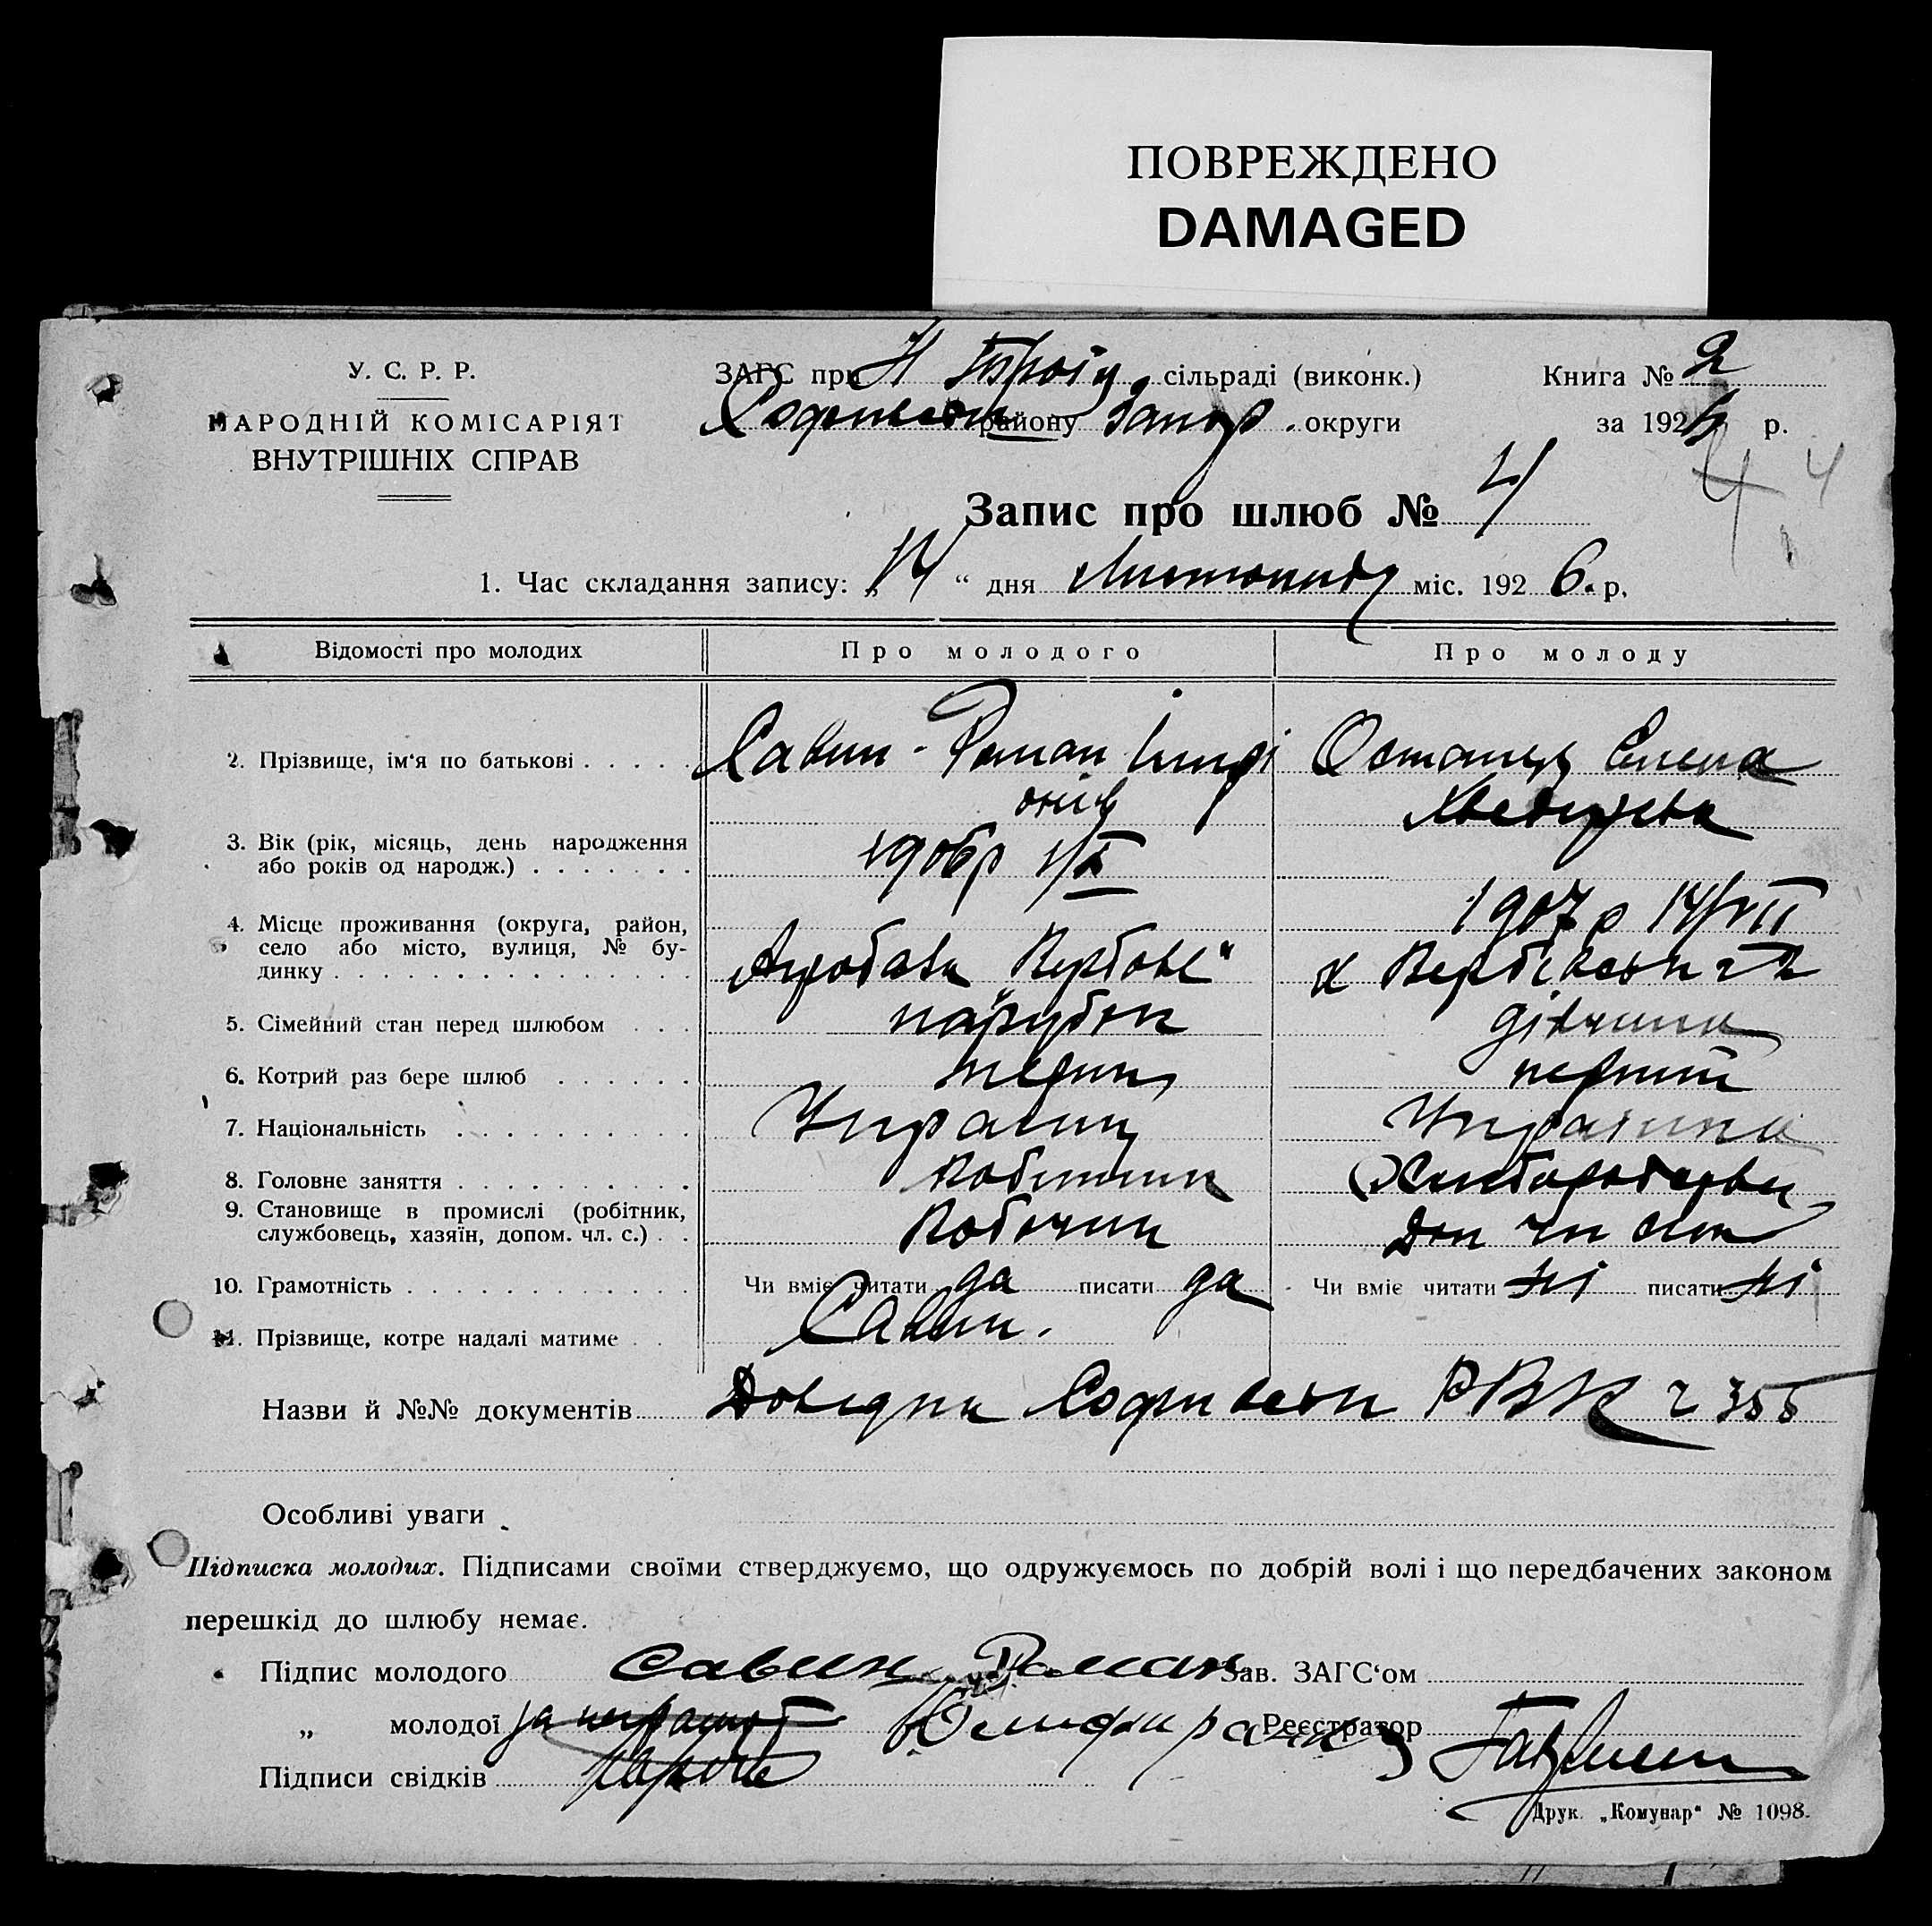 ПОВРЕЖДЕНО
DAMAGED
У. С. Р. Р.
НАРОДНІЙ КОМІСАРІЯТ
ВНУТРІШНІХ СПРАВ
ЗАГС при Н сільраді (виконк.)
району Запор. округи
Книга № 2
за 1926 р.
4 4
Запис про шлюб № 4
1. Час складання запису: „14“ дня Листопаду міс. 1926. р.
Відомості про молодих
Про молодого
Про молоду
2. Прізвище, ім'я по батькові
Савин - Роман
Остапец Елена
3. Вік (рік, місяць, день народження
або років од народж.)
1906р 1/X
1907 р 14/VII
4. Місце проживання (округа, район,
село або місто, вулиця, № бу-
динку
„Вербове"
х
5. Сімейний стан перед шлюбом
парубок
дівчина
6. Котрий раз бере шлюб
перший
7. Національність
Україн
Українка
8. Головне заняття
Робітник
9. Становище в промислі (робітник,
службовець, хазяїн, допом. чл. с.)
Робочий
Доп чл
10. Грамотність
Чи вміє читати да писати да
Чи вміє читати ні писати ні
11. Прізвище, котре надалі матиме
Савин.
Назви й №№ документів Довідка РВК 355
Особливі уваги
Підписка молодих. Підписами своїми стверджуємо, що одружуємось по добрій волі і що передбачених законом
перешкід до шлюбу немає.
Підпис молодого Савин Роман
Зав. ЗАГС'ом
„ молодої за
Реєстратор
Підписи свідків
Друк. „Комунар“ № 1098.